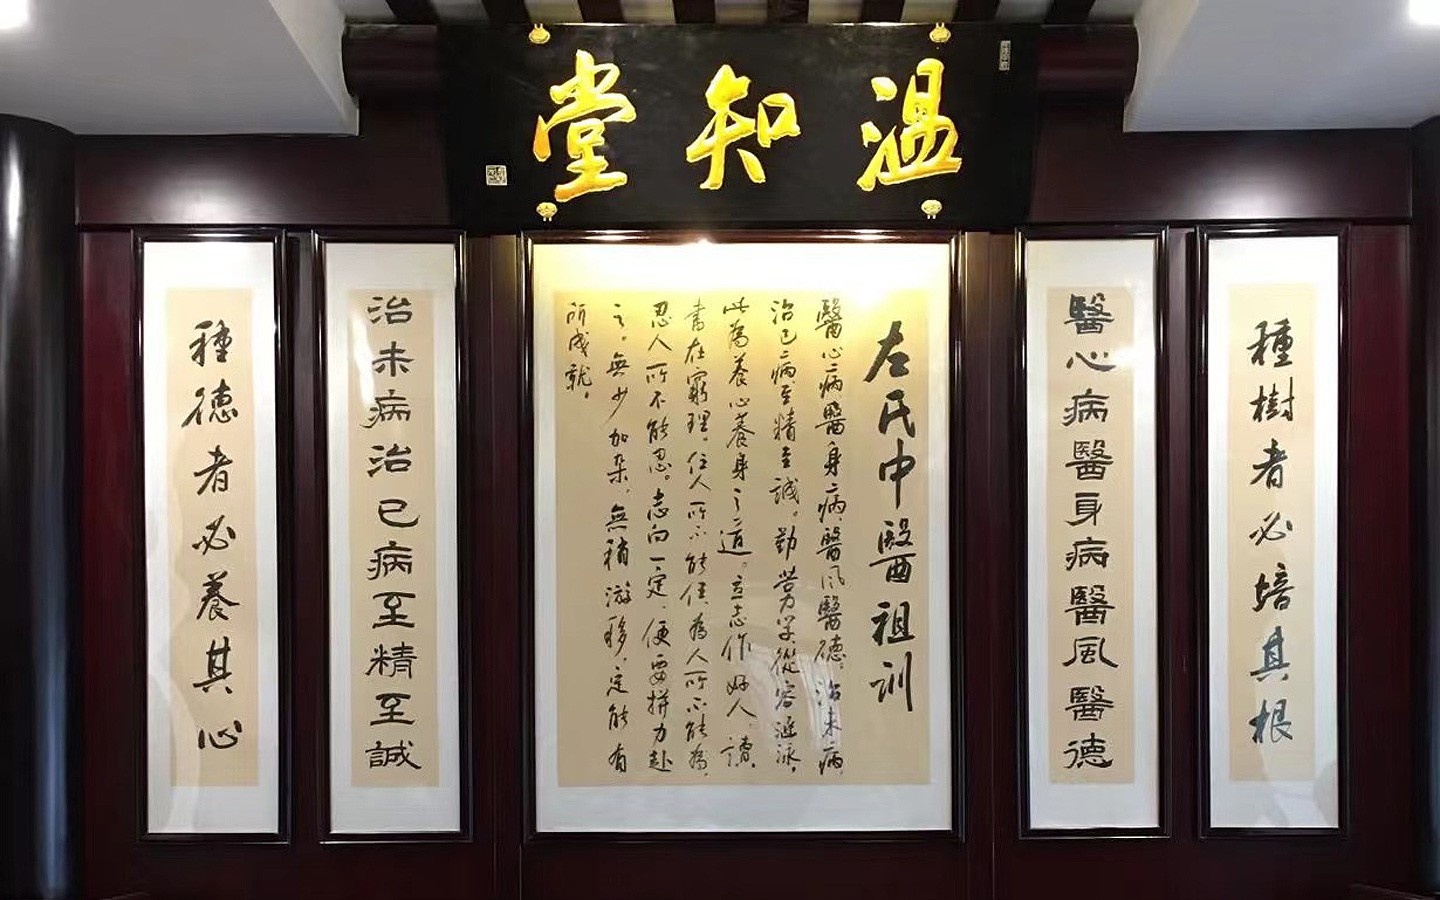 溫知堂
種樹者必培其根
醫心病醫身病醫風醫德
左氏中醫祖训
醫心病醫身病醫风醫德。治未病
治已病至精至誠。勤劳学從容涵泳，
此為養心養身之道。立志作好人，讀
書在窮理。任人所不能任，為人所不能為，
忍人所不能忍。志向一定，便要拼力赴
之。無少加杂，無稍游移，定能有
所成就。
治未病治已病至精至誠
種德者必養其心